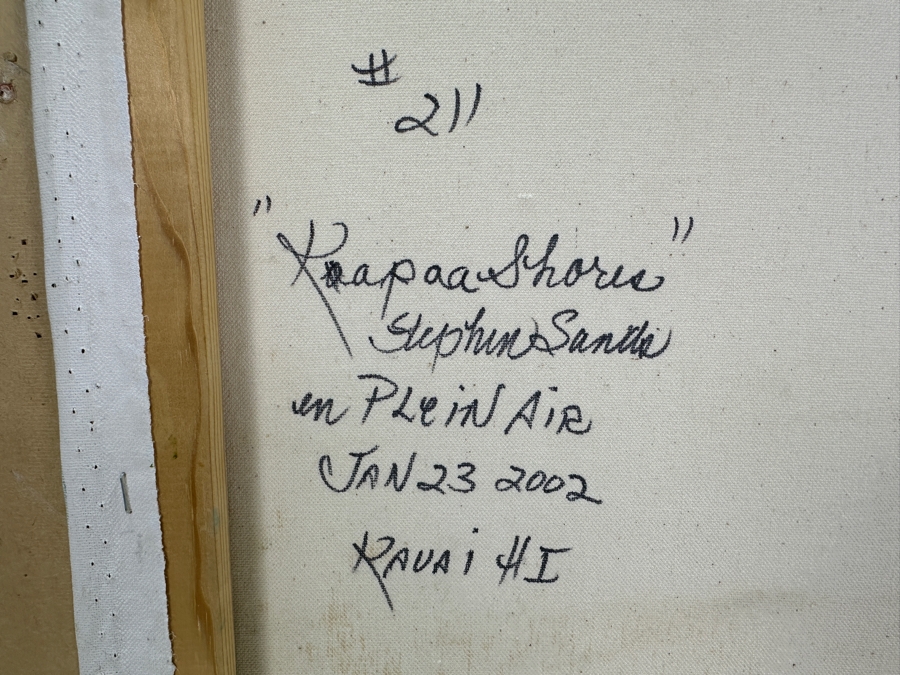 #
211
"Kaapaa Shores"
Stephen Sands
en PLeiN AiR
JAN 23 2002
KAUAi HI